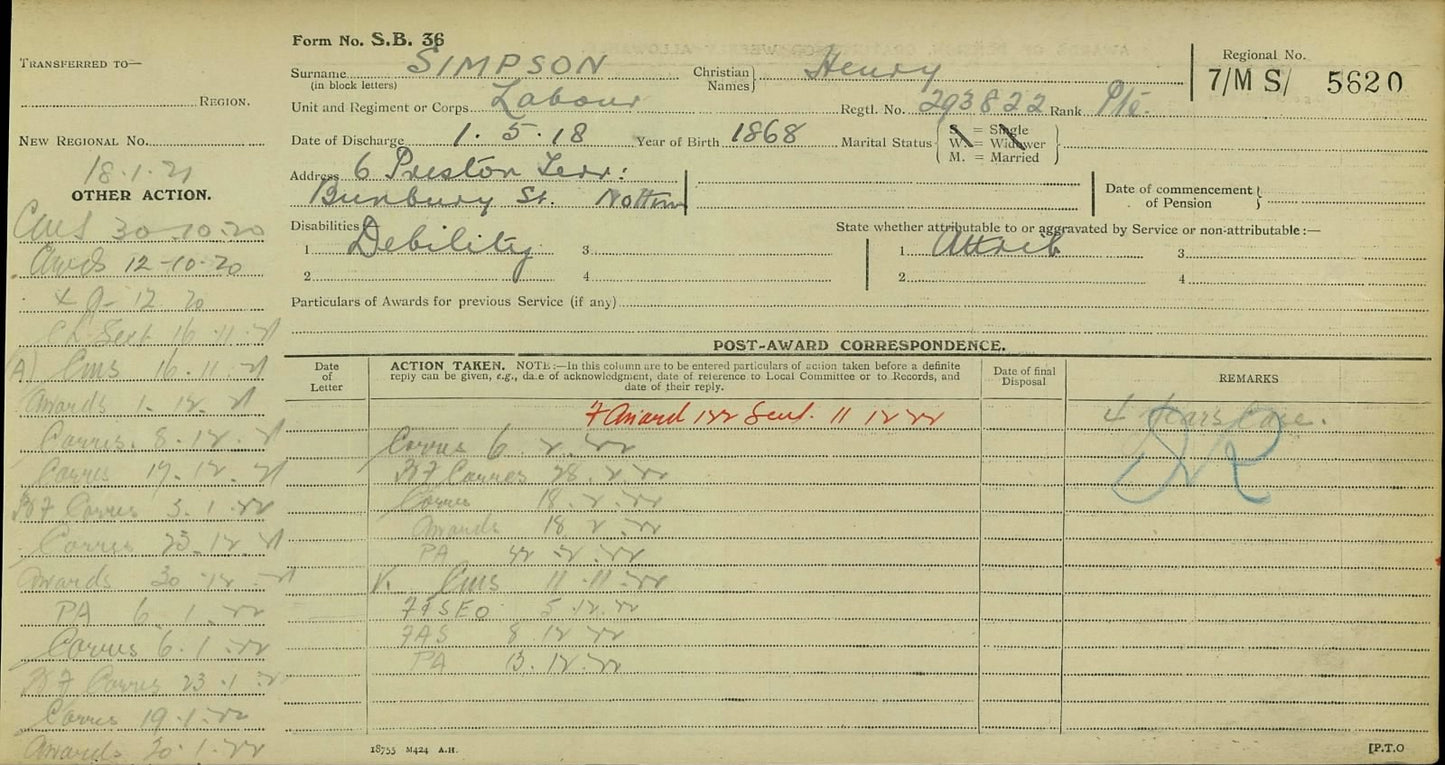 Form No. S.B. 36
TRANSFERRED TO—
REGION.
NEW REGIONAL No.
18.1.21
OTHER ACTION.
Cms 30-10-20
Awds 12-10-20
16 11 21
(A) Cms 16.11.21
Awards 1.12.21
Corres. 8.12.21
Corres 17.12.21
Corres 3.1.22
Corres 23.12.21
Awards 30.12.21
PA 6.1.22
Corres 6.1.22
Corres 23.1.22
Corres 19.1.22
Awards 20.1.22
Surname (in block letters) SIMPSON Christian Names} Henry
Regional No. 7/M S/ 5620
Unit and Regiment or Corps Labour Regtl. No. 293822 Rank Pte.
Date of Discharge 1.5.18 Year of Birth 1868 Marital Status { S. = Single
W. = Widower
M. = Married }
Address 6 Preston Terr:
Bunbury St. Nottm
Date of commencement of Pension }
Disabilities
State whether attributable to or aggravated by Service or non-attributable:—
1 Debility 3 1 Attrib 3
2 4 2 4
Particulars of Awards for previous Service (if any)
POST-AWARD CORRESPONDENCE.
Date of Letter
ACTION TAKEN. NOTE:—In this column are to be entered particulars of action taken before a definite
reply can be given, e.g., date of acknowledgment, date of reference to Local Committee or to Records, and
date of their reply.
Date of final Disposal
REMARKS
F Award 122 Sent. 11 12 22
Corres 6 2 22
Corres 28.2.22
Corres 18.2.22
Awards 18 2.22
PA 22.2.22
Cms 11.11.22
5.12.22
FAS 8 12 22
PA 13.12.22
18755 M424 A.H.
[P.T.O